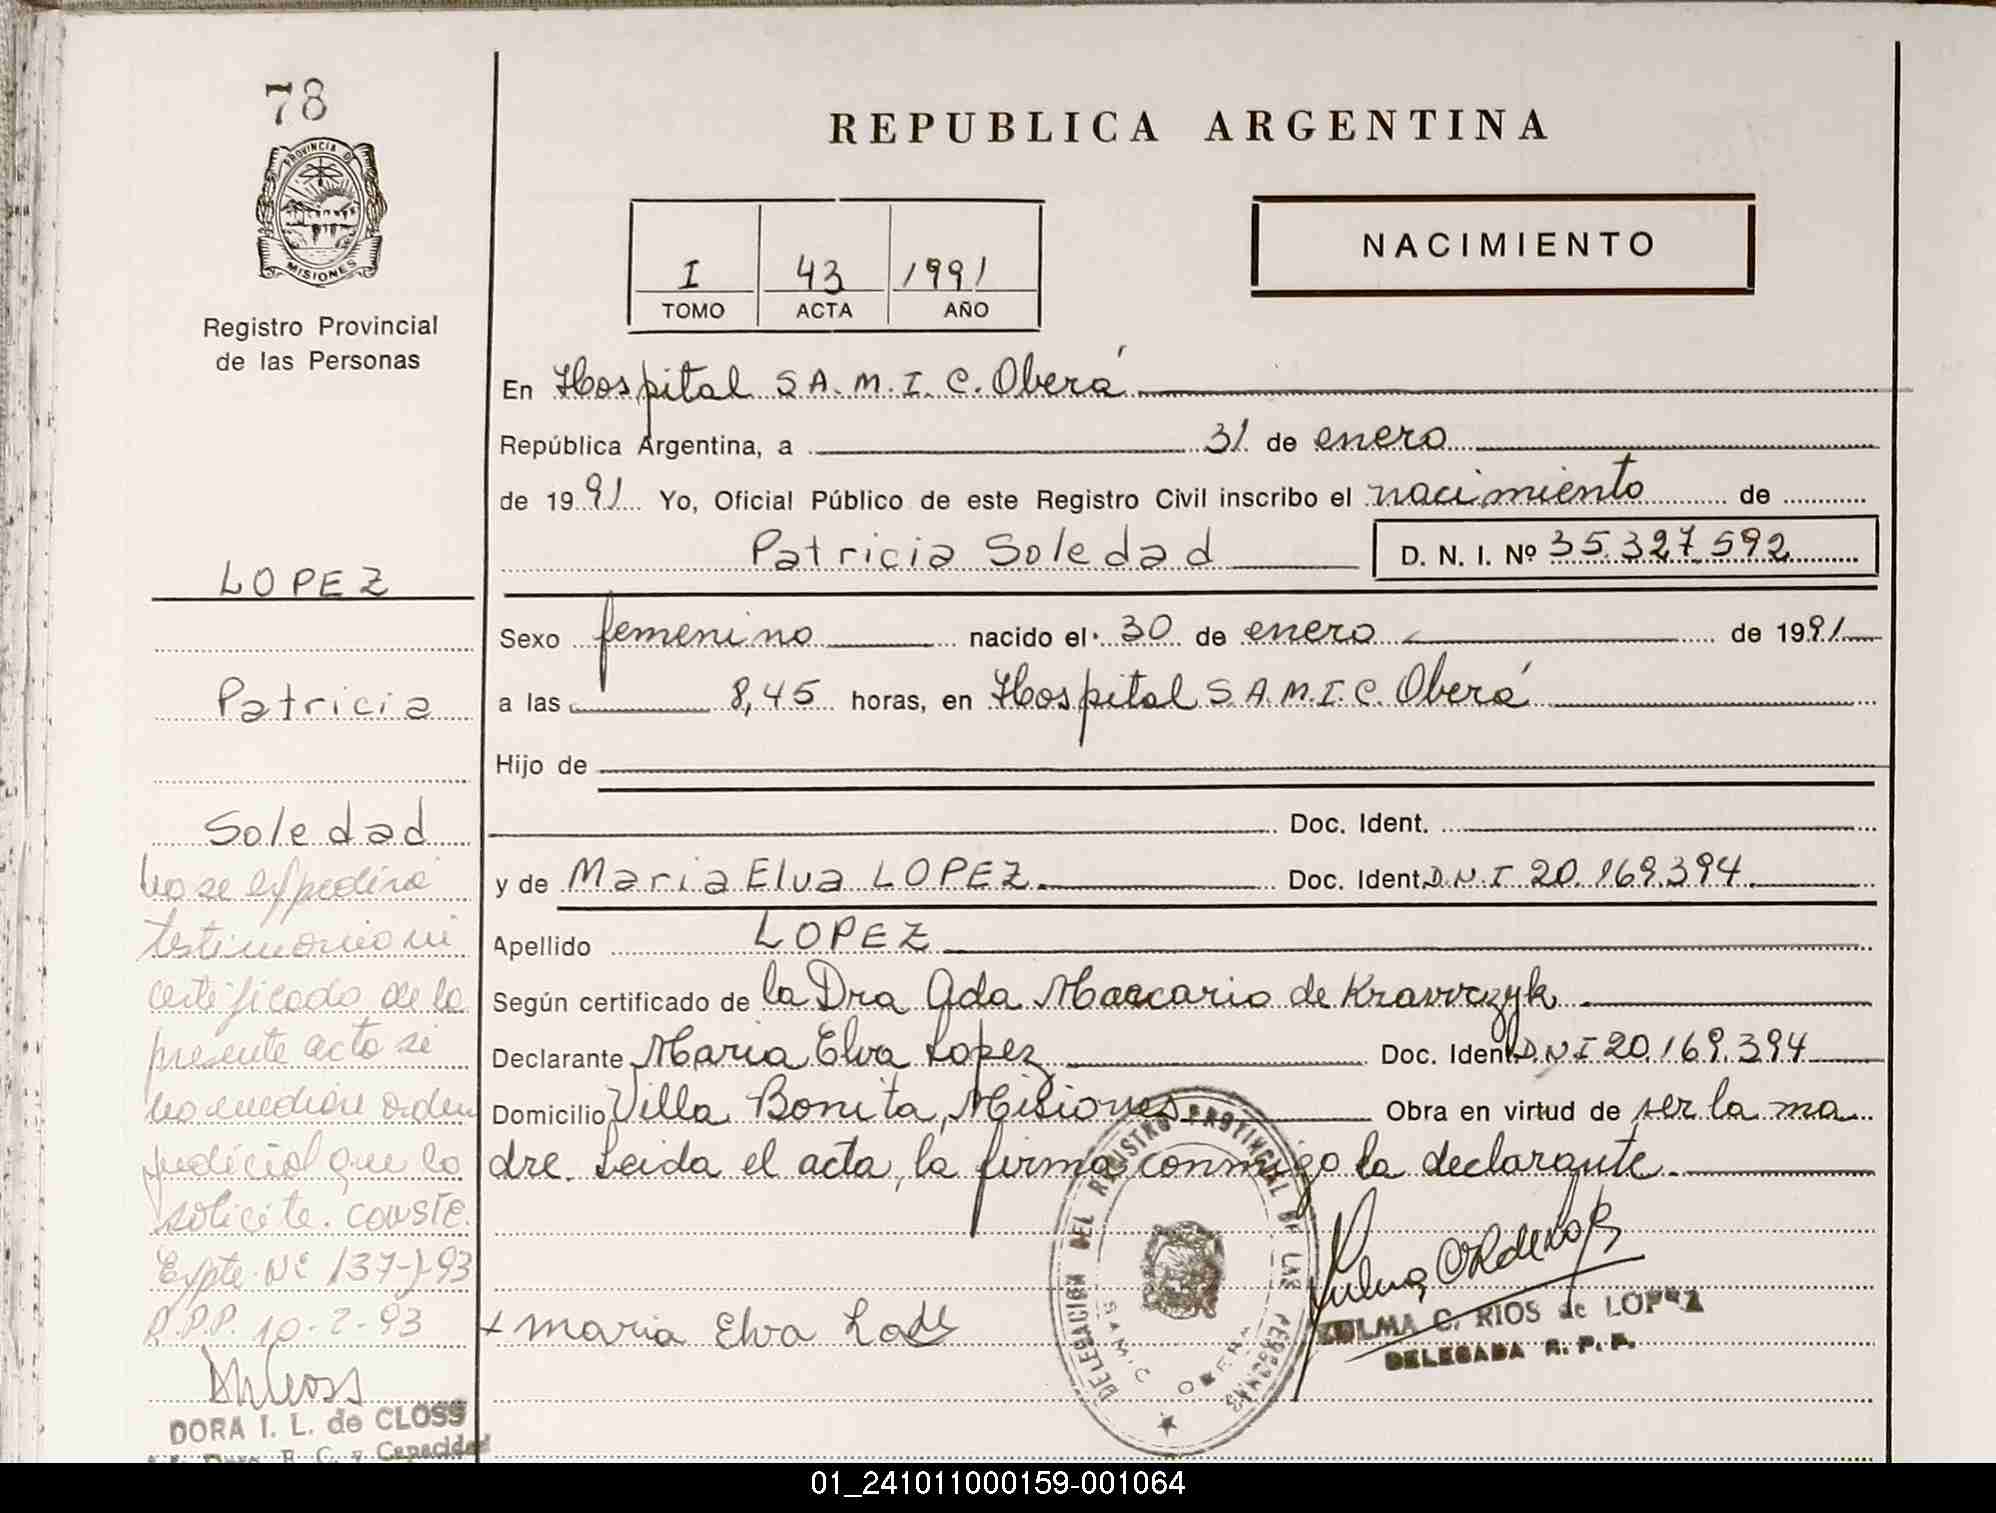 78
PROVINCIA DE
MISIONES
Registro Provincial
de las Personas
LOPEZ
Patricia
Soledad
No se expedirá
testimonio ni
certificado de la
presente acta si
no mediare orden
judicial que lo
solicite. CONSTE.
Expte. Nº 137-J-93
R.P.P. 10-2-93
DORA I. L. de CLOSS
R. C. y Capacidad
REPUBLICA ARGENTINA
I 43 1991
TOMO ACTA AÑO
NACIMIENTO
En Hospital S.A.M.I.C. Oberá
República Argentina, a 31 de enero
de 1991 Yo, Oficial Público de este Registro Civil inscribo el nacimiento de
Patricia Soledad D. N. I. Nº 35.327.592
Sexo femenino nacido el 30 de enero de 1991
a las 8,45 horas, en Hospital S.A.M.I.C. Oberá
Hijo de
Doc. Ident.
y de Maria Elva LOPEZ Doc. Ident. D.N.I 20.169.394
Apellido LOPEZ
Según certificado de la Dra Ada Maccario de Krawczyk
Declarante Maria Elva Lopez Doc. Ident. D.N.I 20.169.394
Domicilio Villa Bonita, Misiones Obra en virtud de ser la ma
dre. Leida el acta, la firma conmigo la declarante.
x maria Elva
DELEGACION DEL REGISTRO PROVINCIAL DE LAS PERSONAS
SAMIC OBERA
ZULMA C. RIOS de LOPEZ
DELEGADA R. P. P.
01_241011000159-001064